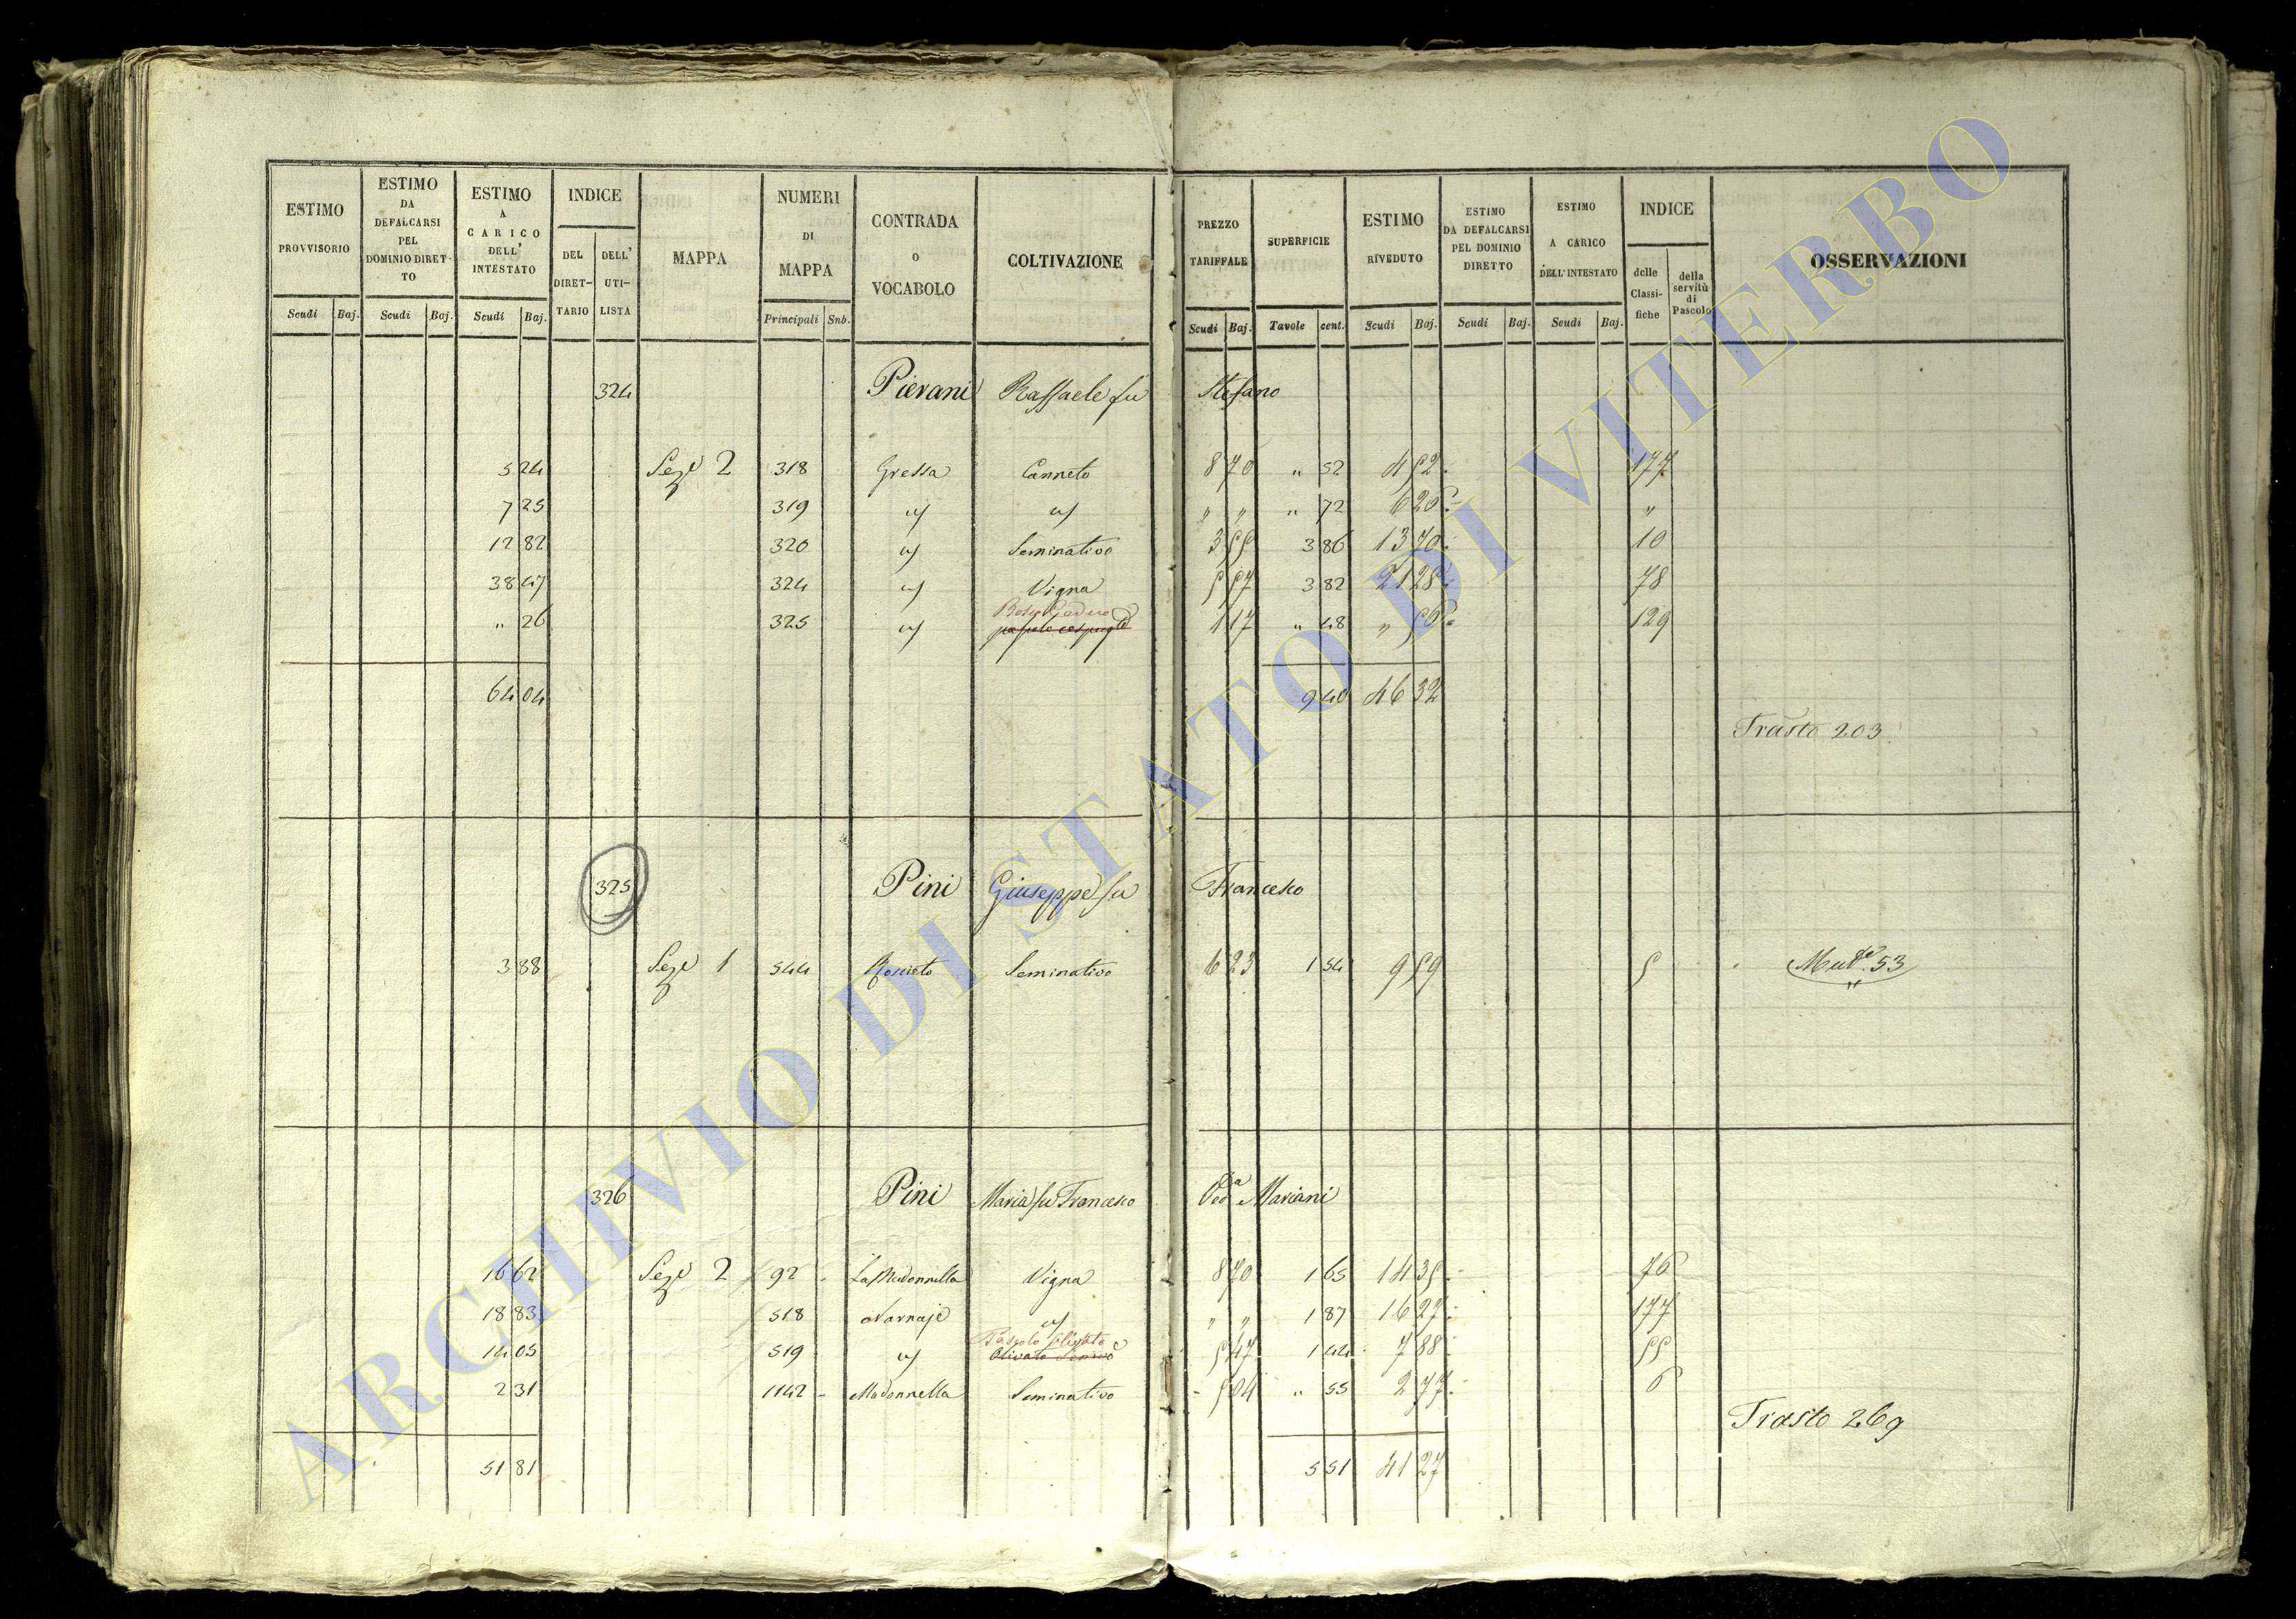 ESTIMO PROVVISORIO
ESTIMO DA DEFALCARSI PEL DOMINIO DIRET-TO
ESTIMO A CARICO DELL' INTESTATO
INDICE
DEL DIRET-TARIO
DELL' UTI-LISTA
MAPPA
NUMERI DI MAPPA
CONTRADA o VOCABOLO
COLTIVAZIONE
PREZZO TARIFFALE
SUPERFICIE
ESTIMO RIVEDUTO
ESTIMO DA DEFALCARSI PEL DOMINIO DIRETTO
ESTIMO A CARICO DELL'INTESTATO
INDICE
delle Classi-fiche
della servitù di Pascolo
OSSERVAZIONI
Scudi Baj. Scudi Baj. Scudi Baj. Principali Snb. Scudi Baj. Tavole cent. Scudi Baj. Scudi Baj. Scudi Baj.
324 Pierani Raffaele fu Stefano
5 24 Sezе 2 318 Gressa Canneto 8 70 " 52 4 52 177
7 25 319 " 72 6 26 "
12 82 320 Seminativo 3 55 3 86 13 70 10
38 47 324 Vigna 5 57 3 82 21 28 78
Bosco Ceduo
" 26 325 1 17 " 48 " 56 129
64 04 9 40 46 32
Trasto 203
325 Pini Giuseppe fu Francesco
3 88 Seze 1 544 Roscieto Seminativo 6 23 1 54 9 59 5 Mutе 53
326 Pini Maria fu Francesco Veda Mariani
16 62 Seze 2 92 La Madonnella Vigna 8 70 1 65 14 35 76
18 83 518 Varnaje " " 1 87 16 27 177
Pascolo Olivato
14 05 519 Olivato Semivo 5 47 1 44 7 88 55
2 31 1142 Madonnella Seminativo 5 04 " 55 2 77 6
Trasto 269
51 81 5 51 41 27
ARCHIVIO DI STATO DI VITERBO